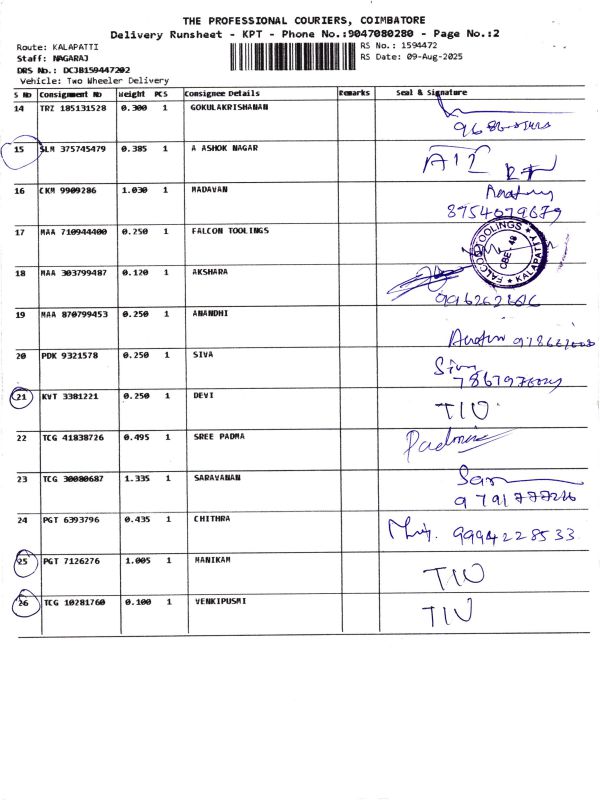 THE PROFESSIONAL COURIERS, COIMBATORE
Delivery Runsheet - KPT - Phone No.:9047080280 - Page No.:2
Route: KALAPATTI
RS No.: 1594472
Staff: NAGARAJ
RS Date: 09-Aug-2025
DRS No.: DCJB159447202
Vehicle: Two Wheeler Delivery
S No Consignment No Weight PCS Consignee Details Remarks Seal & Signature
14 TRZ 185131528 0.300 1 GOKULAKRISHANAN
15 SLM 375745479 0.385 1 A ASHOK NAGAR
16 CKM 9909286 1.030 1 MADAVAN
8754079679
17 MAA 710944400 0.250 1 FALCON TOOLINGS
FALCON TOOLINGS ★ KALAPATTY ★ CBE. 48
18 MAA 303799487 0.120 1 AKSHARA
19 MAA 870799453 0.250 1 ANANDHI
20 PDK 9321578 0.250 1 SIVA
Siva
21 KVT 3381221 0.250 1 DEVI TIU
22 TCG 41838726 0.495 1 SREE PADMA
23 TCG 30080687 1.335 1 SARAVANAN
24 PGT 6393796 0.435 1 CHITHRA 9994228533
25 PGT 7126276 1.005 1 MANIKAM TIU
26 TCG 10281760 0.100 1 VENKIPUSMI TIU